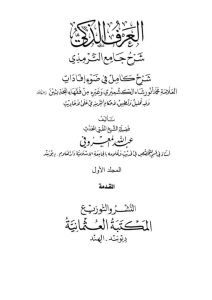 العرف الذكي
شرح جامع الترمذي
شرح كامل في ضوء إفادات
العلامة محمد أنور شاه الكشميري وغيره من الفقهاء المحدثين
تأليف
فضيلة الشيخ المفتي المحدث
عبد الله المعروفي
المجلد الأول
المقدمة
النشر والتوزيع
المكتبة العثمانية
ديوبند - الهند